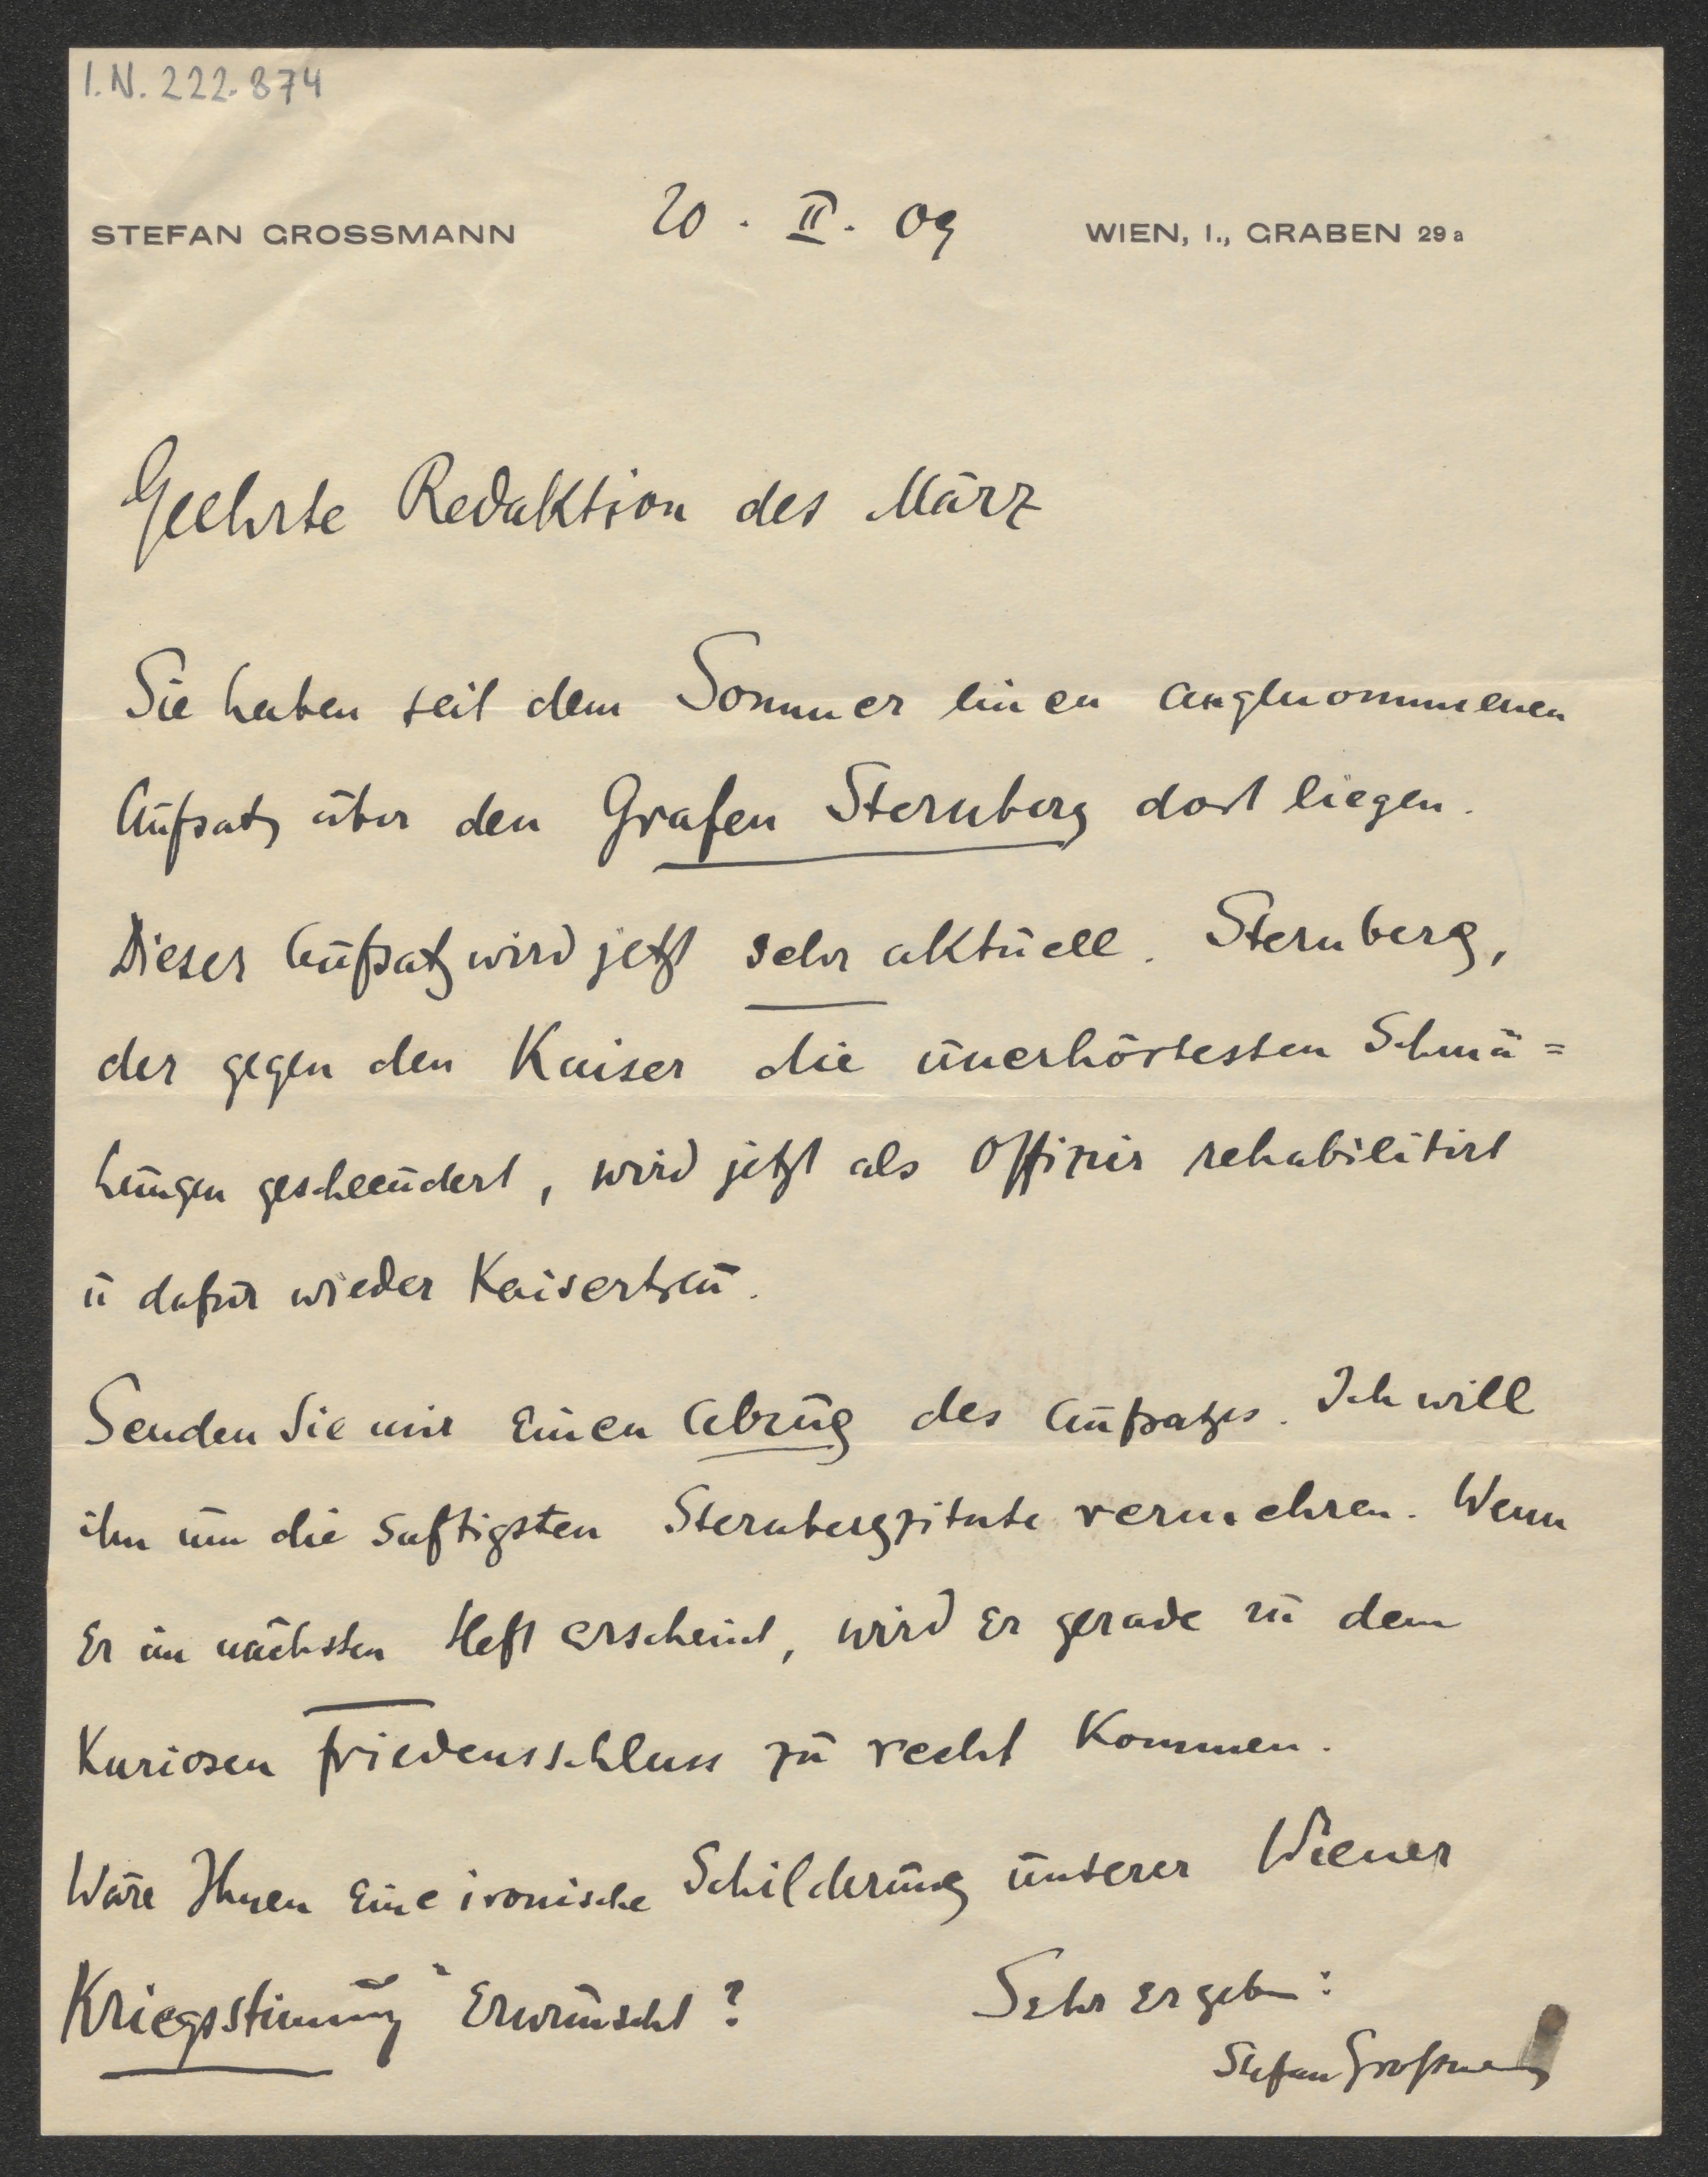 I.N. 222.874
STEFAN GROSSMANN 20. II. 09 WIEN, I., GRABEN 29a
Geehrte Redaktion des März
Sie haben seit dem Sommer einen angenommenen
Aufsatz über den Grafen Sternberg dort liegen.
Dieser Aufsatz wird jetzt sehr aktuell. Sternberg,
der gegen den Kaiser die unerhörtesten Schmä=
hungen geschleudert, wird jetzt als Offizier rehabilitirt
u dafür wieder Kaisertreu.
Senden Sie mir einen Abzug des Aufsatzes. Ich will
ihn um die saftigsten Sternbergzitate vermehren. Wenn
er im nächsten Heft erscheint, wird er gerade zu dem
Kuriosen Friedensschluss zu recht kommen.
Wäre Ihnen eine ironische Schilderung unserer Wiener
Kriegsstimmung erwünscht? Sehr ergeben:
Stefan Großmann